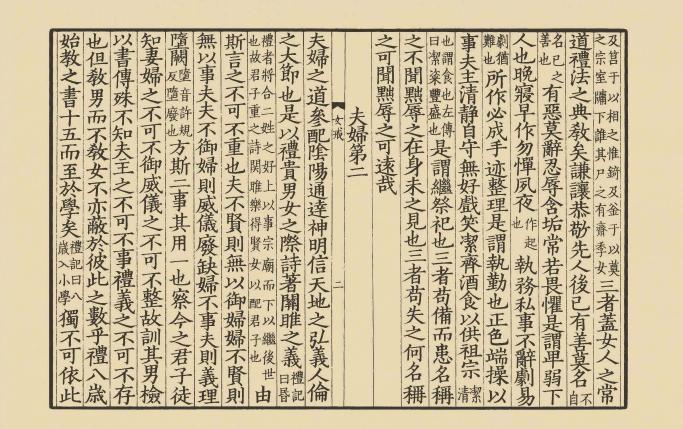 及筥于以相之惟錡及釜于以奠之宗室牖下誰其尸之有齋季女三者蓋女人之常
道禮法之典敎矣謙讓恭敬先人後己有善莫名不自
名己之善也有惡莫辭忍辱含垢常若畏懼是謂卑弱下
人也晚寢早作勿憚夙夜作起也執務私事不辭劇易
劇猶難也所作必成手迹整理是謂執勤也正色端操以
事夫主清靜自守無好戲笑潔齊酒食以供祖宗潔清
也謂食也左傳曰潔粢豐盛也是謂繼祭祀也三者苟備而患名稱
之不聞黜辱之在身未之見也三者苟失之何名稱
之可聞黜辱之可遠哉
夫婦第二
女戒 二
夫婦之道參配陰陽通達神明信天地之弘義人倫
之大節也是以禮貴男女之際詩著關雎之義禮記曰昏
禮者將合二姓之好上以事宗廟而下以繼後世也故君子重之詩関雎樂得賢女以配君子也由
斯言之不可不重也夫不賢則無以御婦婦不賢則
無以事夫夫不御婦則威儀廢缺婦不事夫則義理
墮闕墮音許規反墮廢也方斯二事其用一也察今之君子徒
知妻婦之不可不御威儀之不可不整故訓其男檢
以書傳殊不知夫主之不可不事禮義之不可不存
也但敎男而不敎女不亦蔽於彼此之數乎禮八歲
始敎之書十五而至於學矣禮記曰八歲入小學獨不可依此